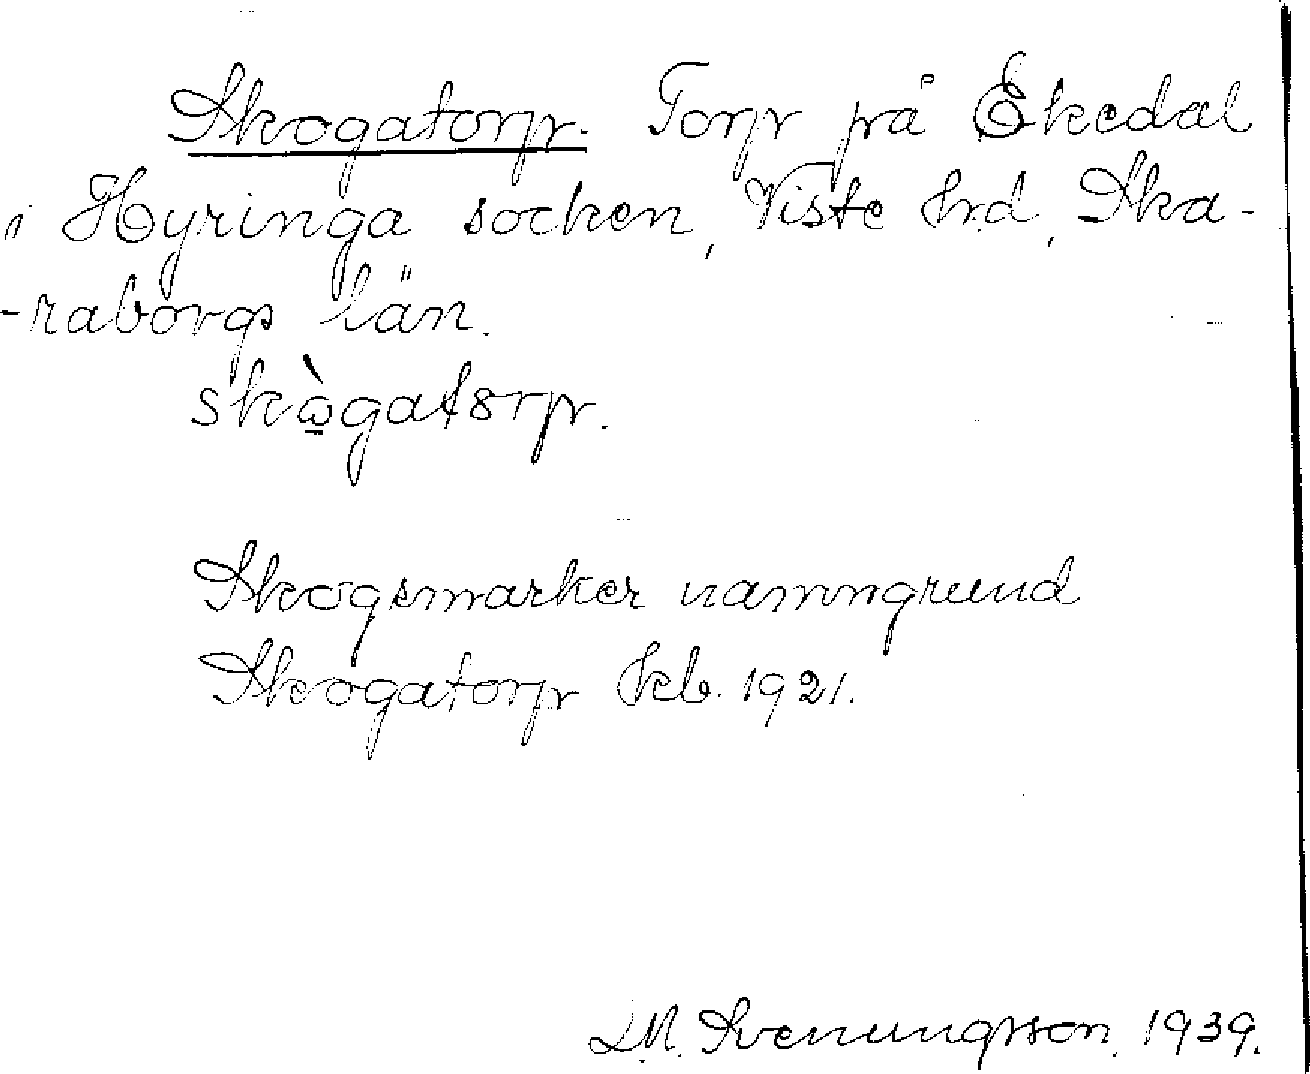 Skogatorp. Torp på Ekedal
i Hyringa socken, Viste hrd, Ska-
-raborgs län.
skògatorp.
Skogsmarker namngrund
Skogatorp kb. 1921.
L.M. Svenungsson. 1939.